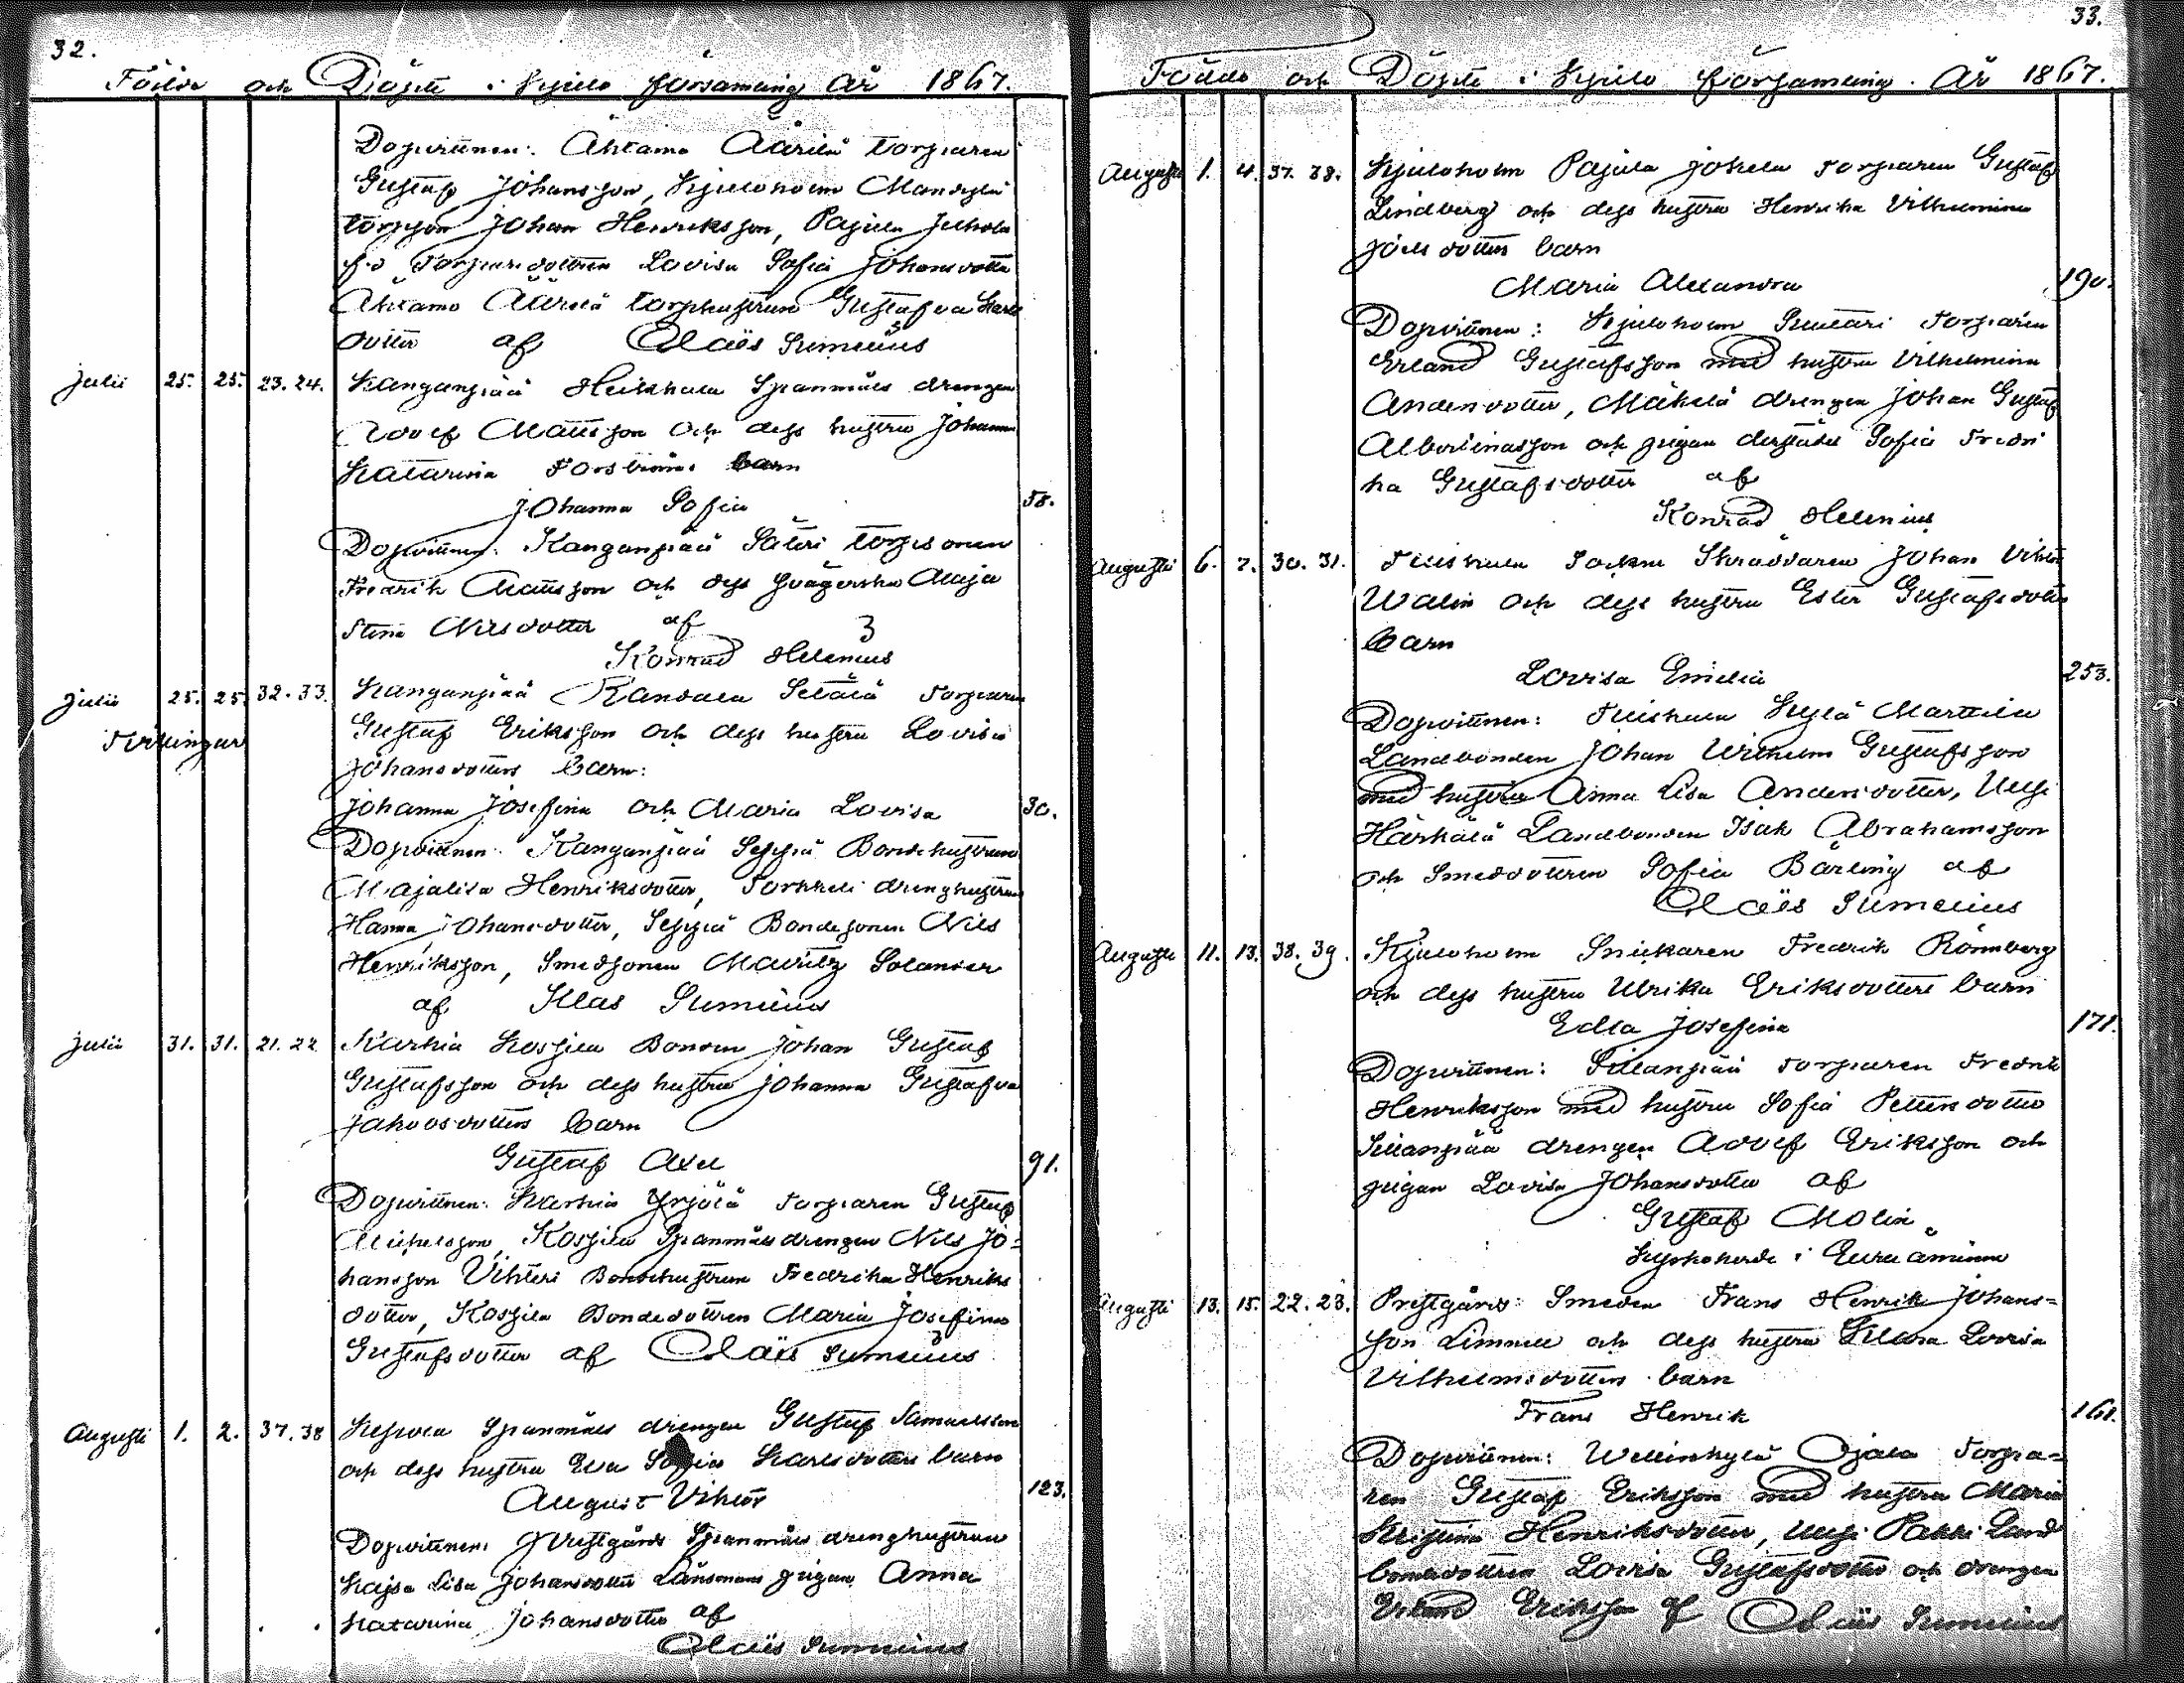 32.
Födde och Döpte i Kjulo församling År 1867.
Dopvittnen: Ahtamo Äärilä torparen
Gustaf Johansson, Kjuloholm Mandylä
torpson Johan Henriksson, Pajula Juhola
f.d. Torparedottren Lovisa Sofia Johansdotter
Ahtamo Äärilä torphustrun Gustafva Karls
dotter af Claës Sumelius
Julii 25. 25. 23.24. Kanganpää Heikkala Spanmåls drengen
Adolf Mattsson och dess hustru Johanna
Katarina Forsströms barn
Johanna Sofia 58.
Dopvittnen: Kanganpää Säteri torpsonen
Fredrik Mattsson och dess svägerska Maja
Stina Nilsdotter af
Konrad Helenius
Julii 25. 25. 32.33. Kanganpää Kandala Setälä Torparen
Tvillingar Gustaf Eriksson och dess hustru Lovisa
Johansdotters barn:
Johanna Josefina och Maria Lovisa 30.
Dopvittnen: Kanganpää Seppä Bondehustrun
Majalisa Henriksdotter, Torkkeli drenghustrun
Hanna Johansdotter, Seppä Bondesonen Nils
Henriksson, Smedsonen Mauritz Solander
af Klas Sumelius
Julii 31. 31. 21.22. Karhia Kospila Bonden Johan Gustaf
Gustafsson och dess hustru Johanna Gustafva
Jakobsdotters barn
Gustaf Axel 91.
Dopvittnen: Karhia Yrjölä Torparen Gustaf
Michelsson, Kospila Spanmåls drengen Nils Jo=
hansson Vihteri Bondehustrun Fredrika Henriks
dotter, Kospila Bondedottren Maria Josefina
Gustafsdotter af Claës Sumelius
Augusti 1. 2. 37.38 Spanmåls drengen Gustaf Samuelsson
och dess hustru Eva Sofia Karlsdotters barn
August Viktor 123.
Dopvittnen: Prestgårds Spanmåls drenghustrun
Kajsa Lisa Johansdotter Länsmans pigan Anna
Katarina Johansdotter af
Claës Sumelius
33.
Födde och Döpte i Kjulo församling År 1867.
Augusti 1. 4. 37.38. Kjuloholm Pajula Jokela Torparen Gustaf
Lindberg och dess hustru Henrika Vilhelmina
Joels dotters barn
Maria Alexandra 190.
Dopvittnen: Kjuloholm Torparen
Erland Gustafsson med hustru Vilhelmina
Andersdotter, Mäkelä drengen Johan Gustaf
Albertinasson och pigan derstädes Sofia Fredri
ka Gustafsdotter af
Konrad Helenius
Augusti 6. 7. 30.31. Tuiskula Socken Skräddaren Johan Viktor
Walin och dess hustru Ester Gustafsdotters
barn
Lovisa Emilia 253.
Dopvittnen: Tuiskula Kylä Marttila
Landbonden Johan Wilhelm Gustafsson
med hustru Anna Lisa Andersdotter, Uusi
Härkälä Landbonden Isak Abrahamsson
och Smeddottren Sofia Bärling af
Claës Sumelius
Augusti 11. 13. 38.39. Kjuloholm Snickaren Fredrik Rönnberg
och dess hustru Ulrika Eriksdotters barn
Edla Josefina 171.
Dopvittnen: Sillanpää Torparen Fredrik
Henriksson med hustru Sofia Petters dotter
Sillanpää drengen Adolf Eriksson och
pigan Lovisa Johansdotter af
Gustaf Molin
Kyrkoherde i Euraåminne
Augusti 13. 15. 22.23. Prestgårds Smeden Frans Henrik Johans=
son Limnell och dess hustru Lovisa
Vilhelmsdotters barn
Frans Henrik 161.
Dopvittnen: Wellinkylä Ojala Torpa=
ren Gustaf Eriksson med hustru Maria
Kristina Henriksdotter, Uusi Pakki Land
bondedottren Lovisa Gustafsdotter och drengen
Erland Eriksson af Claës Sumelius